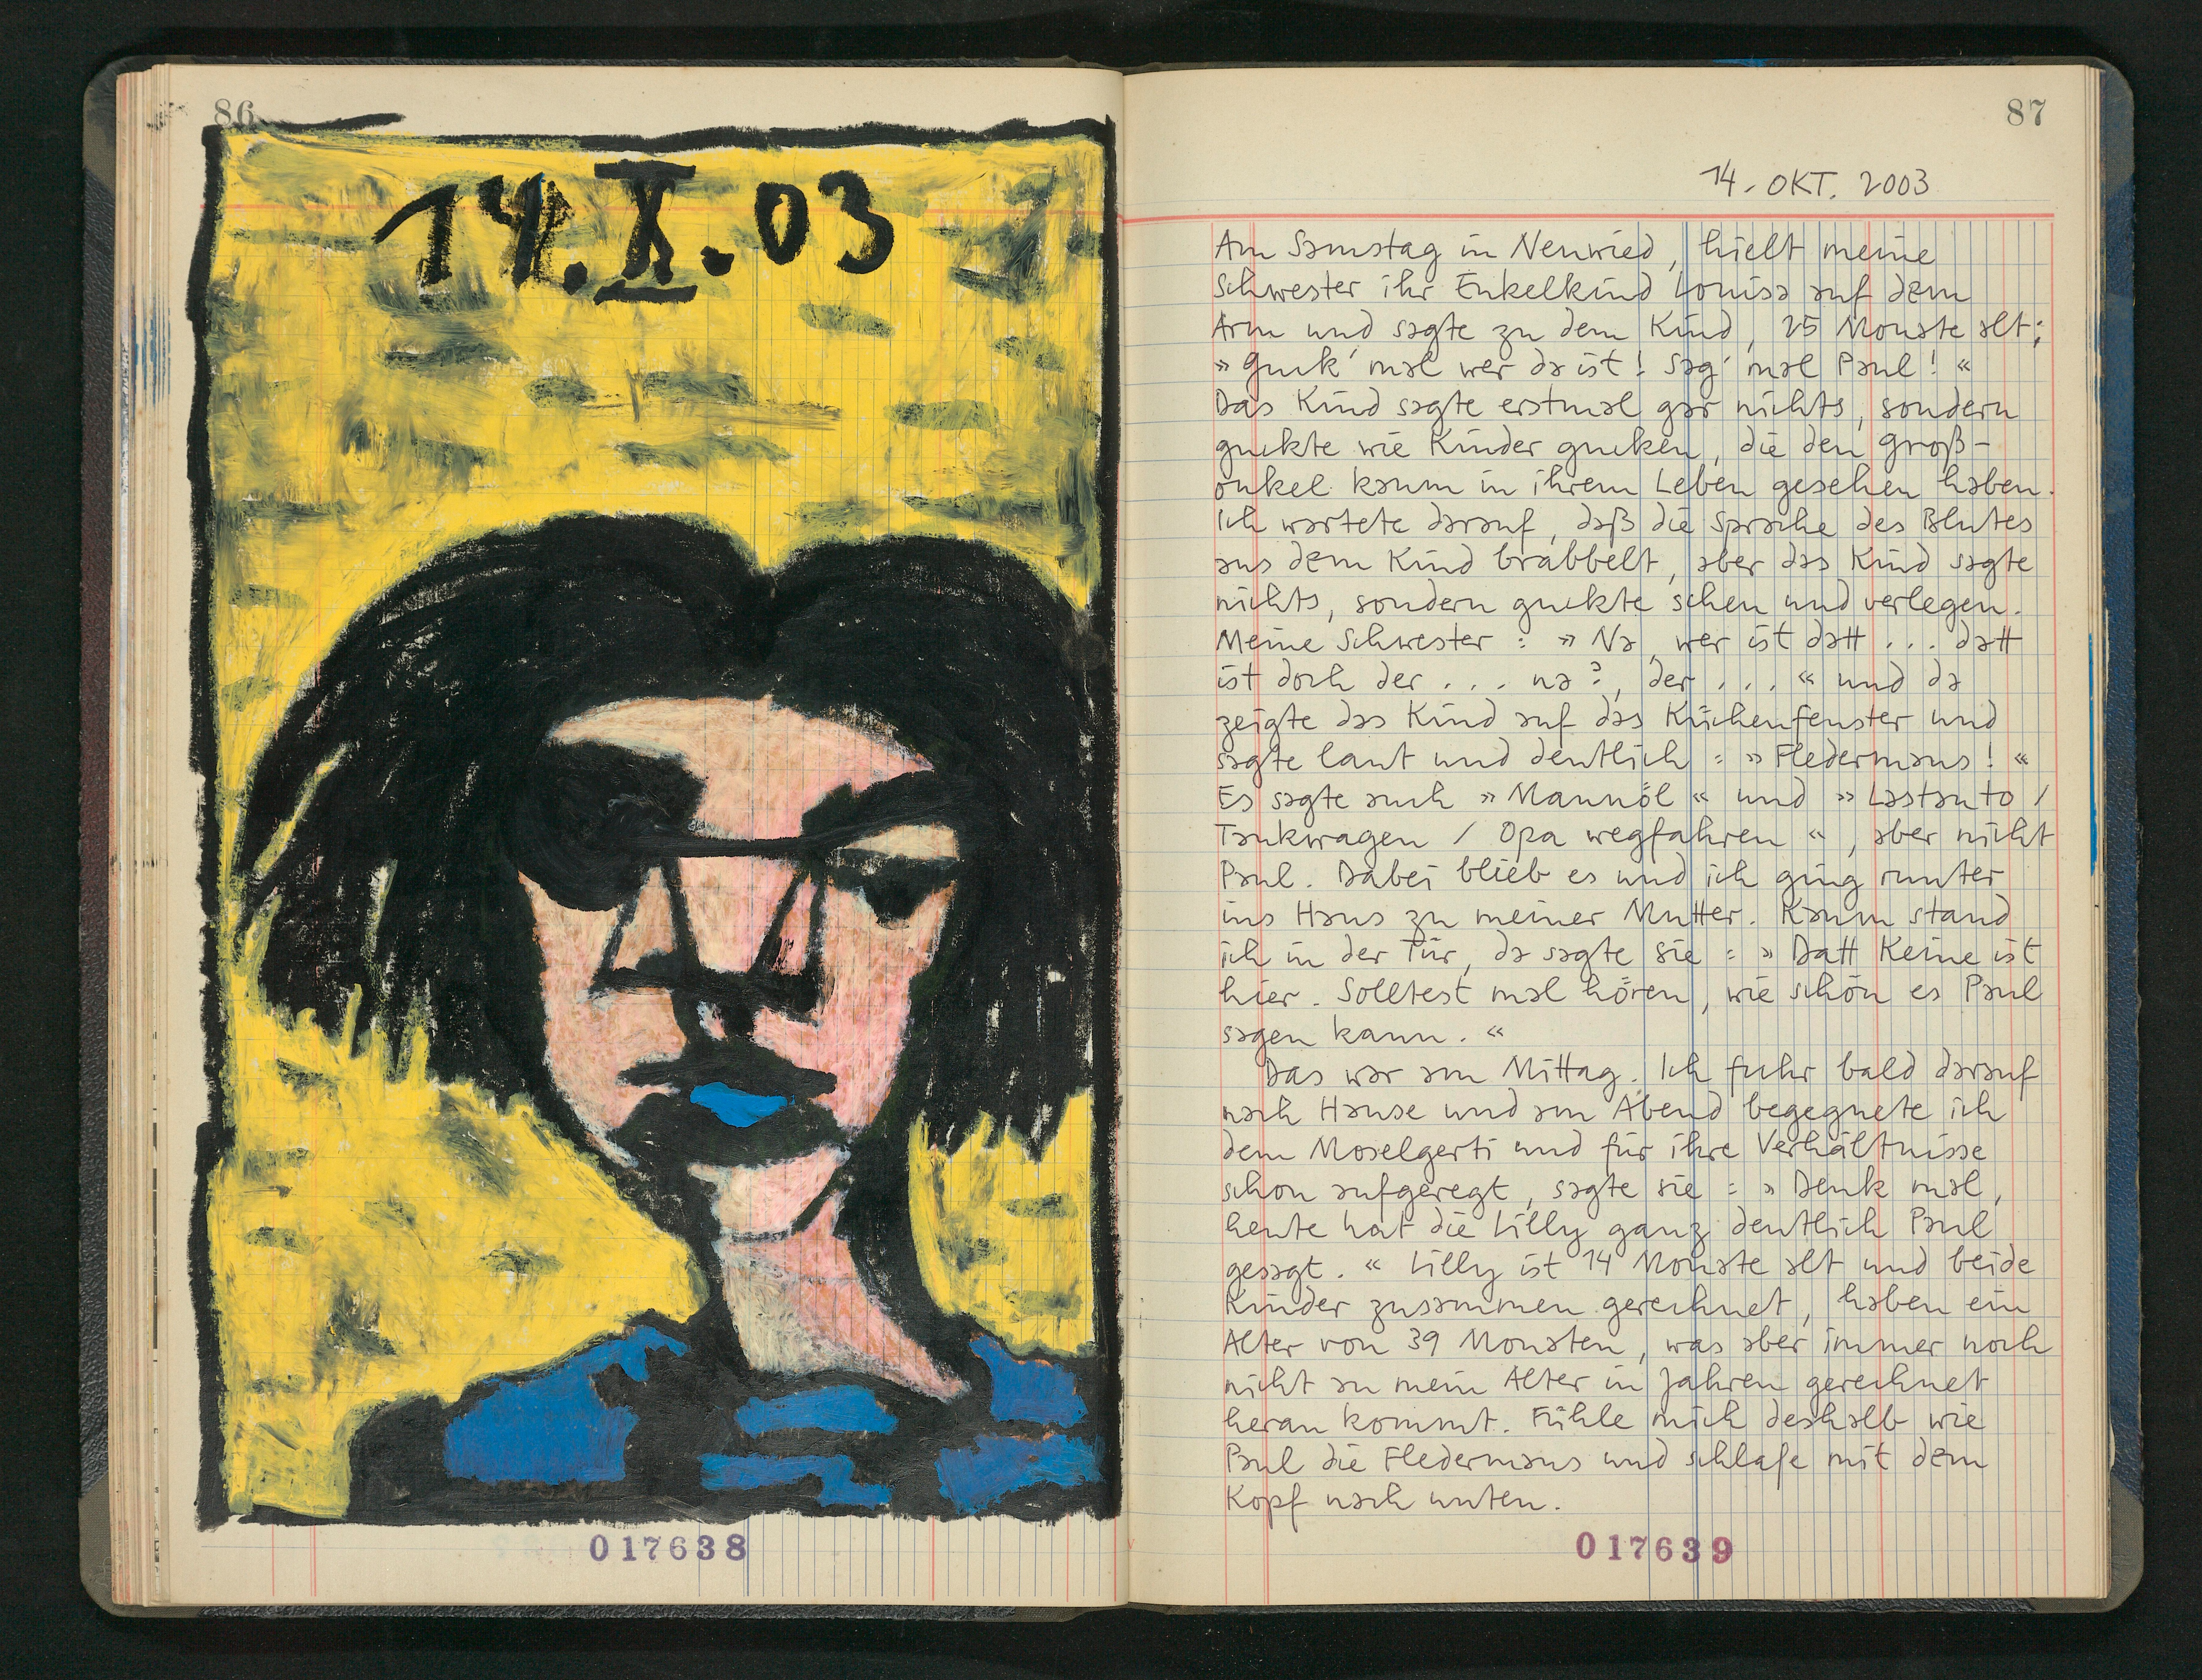 86
14.X.03
017638
87
14. OKT. 2003
Am Samstag in Neuwied, hielt meine
Schwester ihr Enkelkind Louisa auf dem
Arm und sagte zu dem Kind, 25 Monate alt;
» Guck' mal wer da ist! Sag' mal Paul! «
Das Kind sagte erstmal gar nichts, sondern
guckte wie Kinder gucken, die den Groß-
onkel kaum in ihrem Leben gesehen haben.
Ich wartete darauf, daß die Sprache des Blutes
aus dem Kind brabbelt, aber das Kind sagte
nichts, sondern guckte scheu und verlegen.
Meine Schwester : » Na, wer ist datt ... datt
ist doch der ... na?, der ... « und da
zeigte das Kind auf das Küchenfenster und
sagte laut und deutlich : » Fledermaus! «
Es sagte auch » Mannöl « und » Lastauto /
Tankwagen / Opa wegfahren «, aber nicht
Paul. Dabei blieb es und ich ging runter
ins Haus zu meiner Mutter. Kaum stand
ich in der Tür, da sagte sie : » Datt Keine ist
hier. Solltest mal hören, wie schön es Paul
sagen kann. «
Das war am Mittag. Ich fuhr bald darauf
nach Hause und am Abend begegnete ich
dem Moselgerti und für ihre Verhältnisse
schon aufgeregt, sagte sie : » Denk mal,
heute hat die Lilly ganz deutlich Paul
gesagt. « Lilly ist 14 Monate alt und beide
Kinder zusammen gerechnet, haben ein
Alter von 39 Monaten, was aber immer noch
nicht an mein Alter in Jahren gerechnet
heran kommt. Fühle mich deshalb wie
Paul die Fledermaus und schlafe mit dem
Kopf nach unten.
017639